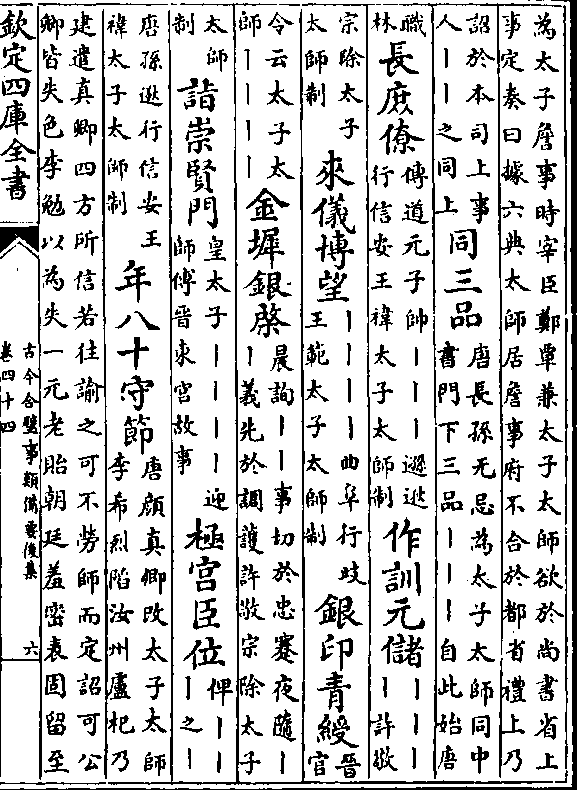 為太子詹事時宰臣鄭覃兼太子太師欲於尚書省上
事定奏曰據六典太師居詹事府不合於都省禮上乃
詔於本司上事
人丨丨之同上
同三品
唐長孫无忌為太子太師同中
書門下三品丨丨丨自此始唐
職
林
長庶僚
傅道元子帥丨丨丨遜逖
行信安王褘太子太師制
作訓元儲
丨丨丨丨
丨許敬
宗除太子
太師制
來儀博望
丨丨丨丨曲阜行歧
王範太子太師制
銀印青綬
晉
官
令云太子太
師丨丨丨丨
金墀銀棨
丨晨詢丨丨事切於忠蹇夜隨丨
丨義先於調護許敬宗除太子
太師
制
詣崇賢門
皇太子丨丨丨丨迎
師傅晉東宮故事
極宮臣位
俾丨丨
丨之丨
唐孫逖行信安王
褘太子太師制
年八十守節
唐顏真卿改太子太師
李希烈陷汝州盧杞乃
建遣真卿四方所信若往諭之可不勞師而定詔可公
卿皆失色李勉以為失一元老貽朝廷羞密表固留至
欽定四庫全書
古今合璧事類備要後集
卷四十四
六